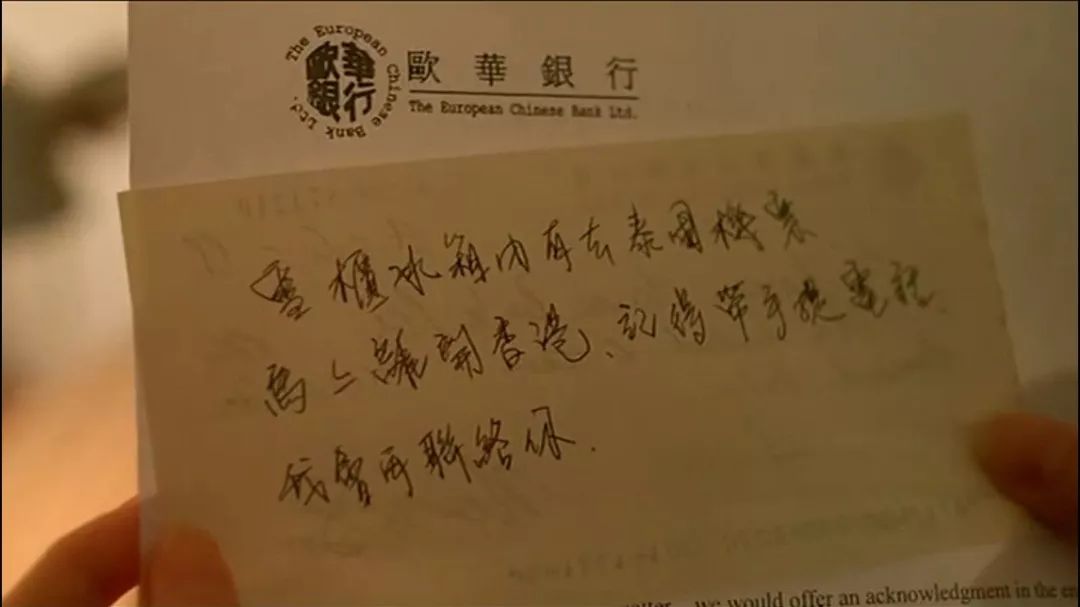 The European Chinese Bank Ltd.
歐華銀行
歐華銀行
The European Chinese Bank Ltd.
雪櫃冰箱內有去泰國機票
馬上離開香港、記得帶手提電話.
我會再聯絡你.
we would offer an acknowledgment in the en